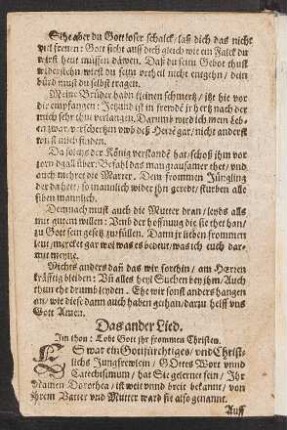 Sihe aber du Gott loser schalck / laß dich das nicht
viel frewen: Gott sicht auff dich gleich wie ein Falck du
wirst heut müssen
Daß du sein Gebot thust
widerstehn wirst du sein vrtheil nicht entgehn / dein
bürd must du selbst tragen.
Meine Brüder habt keinen schmertz / itzt hie vor
die empfangen: Jetzund ist in frewde jr hertz nach der
mich sehr thut verlangen. Darumb werd ich mein leb-
en zwar verschertzen vnd deß
gar / nicht anderst
must mich finden.
Da solchs der König verstandē hat / schoß ihm vor
zorn
vber: Befahl das man
thet / vnd
auch mehret die Marter. Dem frommen Jüngling
der da hett / so mannlich wider ihn geredt / sturben alle
siben mannlich.
Demnach must auch die Mutter dran / leyds alls
mit gutem willen: Vmb der hoffnung die sie thet han /
zu Gott sein gesetz zu füllen. Dann jr lieben frommen
leut / mercket gar wol was es bedeut / was ich euch dar-
mit meyne.
Nichts anders dañ das wir forthin / am Herren
kräfftig bleiben: Vñ alles heyl Suchen bey jhm / Auch
thun ehe drumb leyden. Ehe wir sonst anders hangen
an / wie diese dann auch haben gethan / darzu helff vns
Gott Amen.
Das ander Lied.
Im thon: Lobt Gott jhr frommen Christen.
ES war ein Gottfürchtiges / vnd Christ-
liche Jungfrewlein / GOttes Wort vnnd
Catechismum / hat Sie gelernet fein / Ihr
Namen Dorothea / ist weit vnnd breit bekant / von
Ihrem Vatter vnd Mutter ward sie also genannt.
Auff